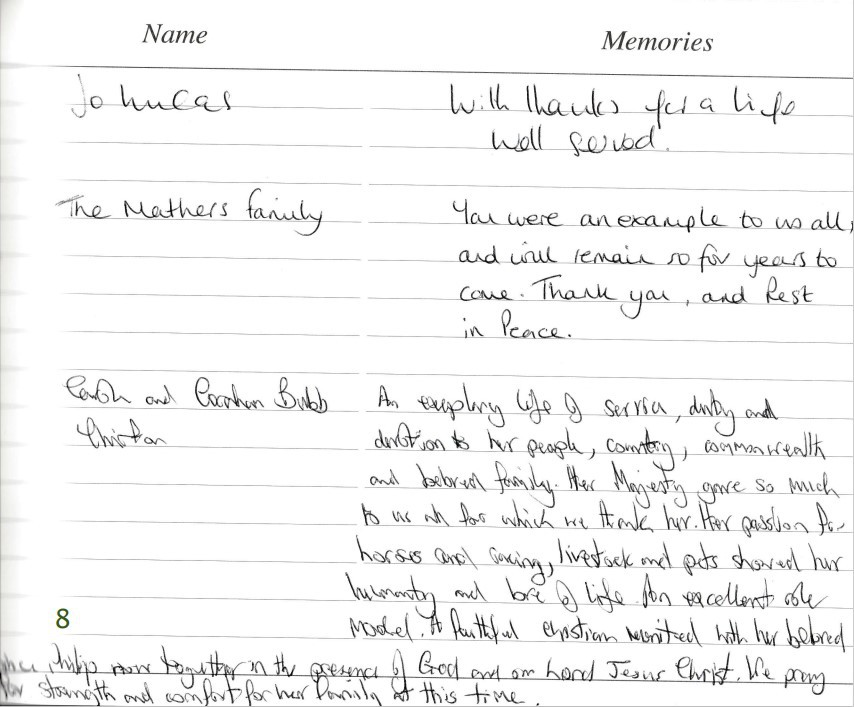 Name Memories
Jo Lucas With thanks for a life
well served.
The Mathers family You were an example to us all,
and will remain so for years to
come. Thank you, and Rest
in Peace.
and Bubb An exemplary life of service, duty and
devotion to her people, country, commonwealth
and beloved family. Her Majesty gave so much
to us all for which we thank her. Her passion for
horses and racing, livestock and pets showed her
humanity and love of life. An excellent role
8 model. A faithful christian reunited with her beloved
Philip now together in the presence of God and our Lord Jesus Christ. We pray
for strength and comfort for her family at this time.